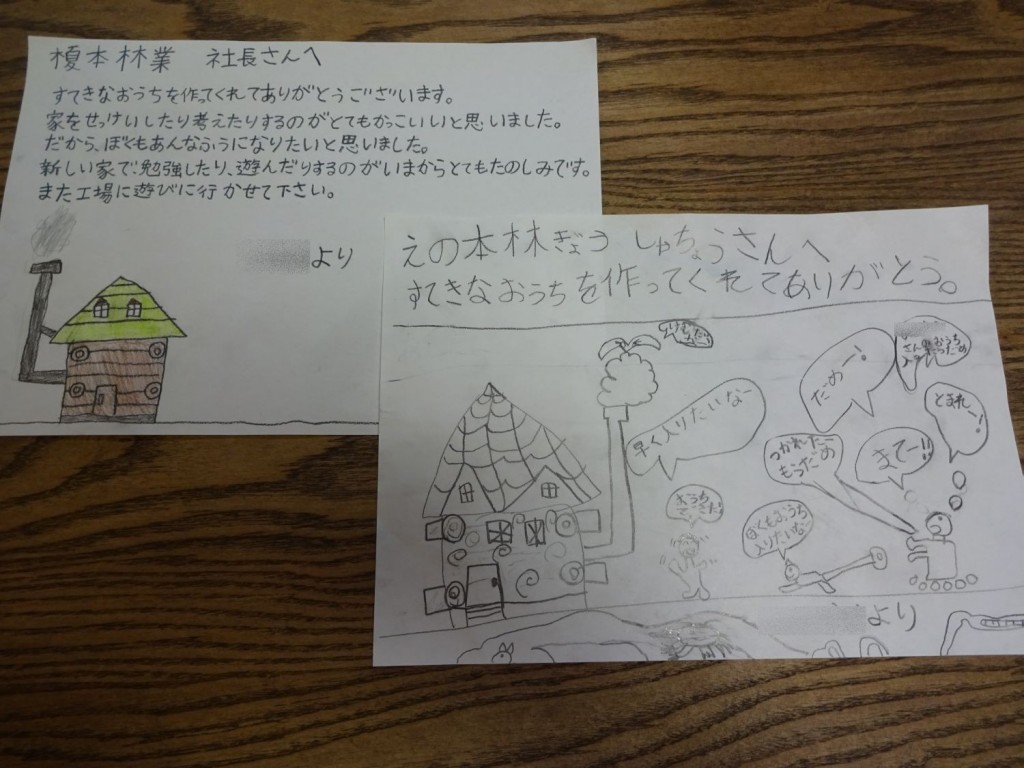 榎本林業 社長さんへ
すてきなおうちを作ってくれてありがとうございます。
家をせっけいしたり考えたりするのがとてもかっこいいと思いました。
だから、ぼくもあんなふうになりたいと思いました。
新しい家で勉強したり、遊んだりするのがいまからとてもたのしみです。
また工場に遊びに行かせて下さい。
より
えの本林ぎょう しゅちょうさんへ
すてきなおうちを作ってくれてありがとう。
早く入りたいなー
だめー!
さんの
おうち
とまれー!
つかれたー
もうだめ
まてー!!
おうち
ぼくもおうち
入りたいなー
より